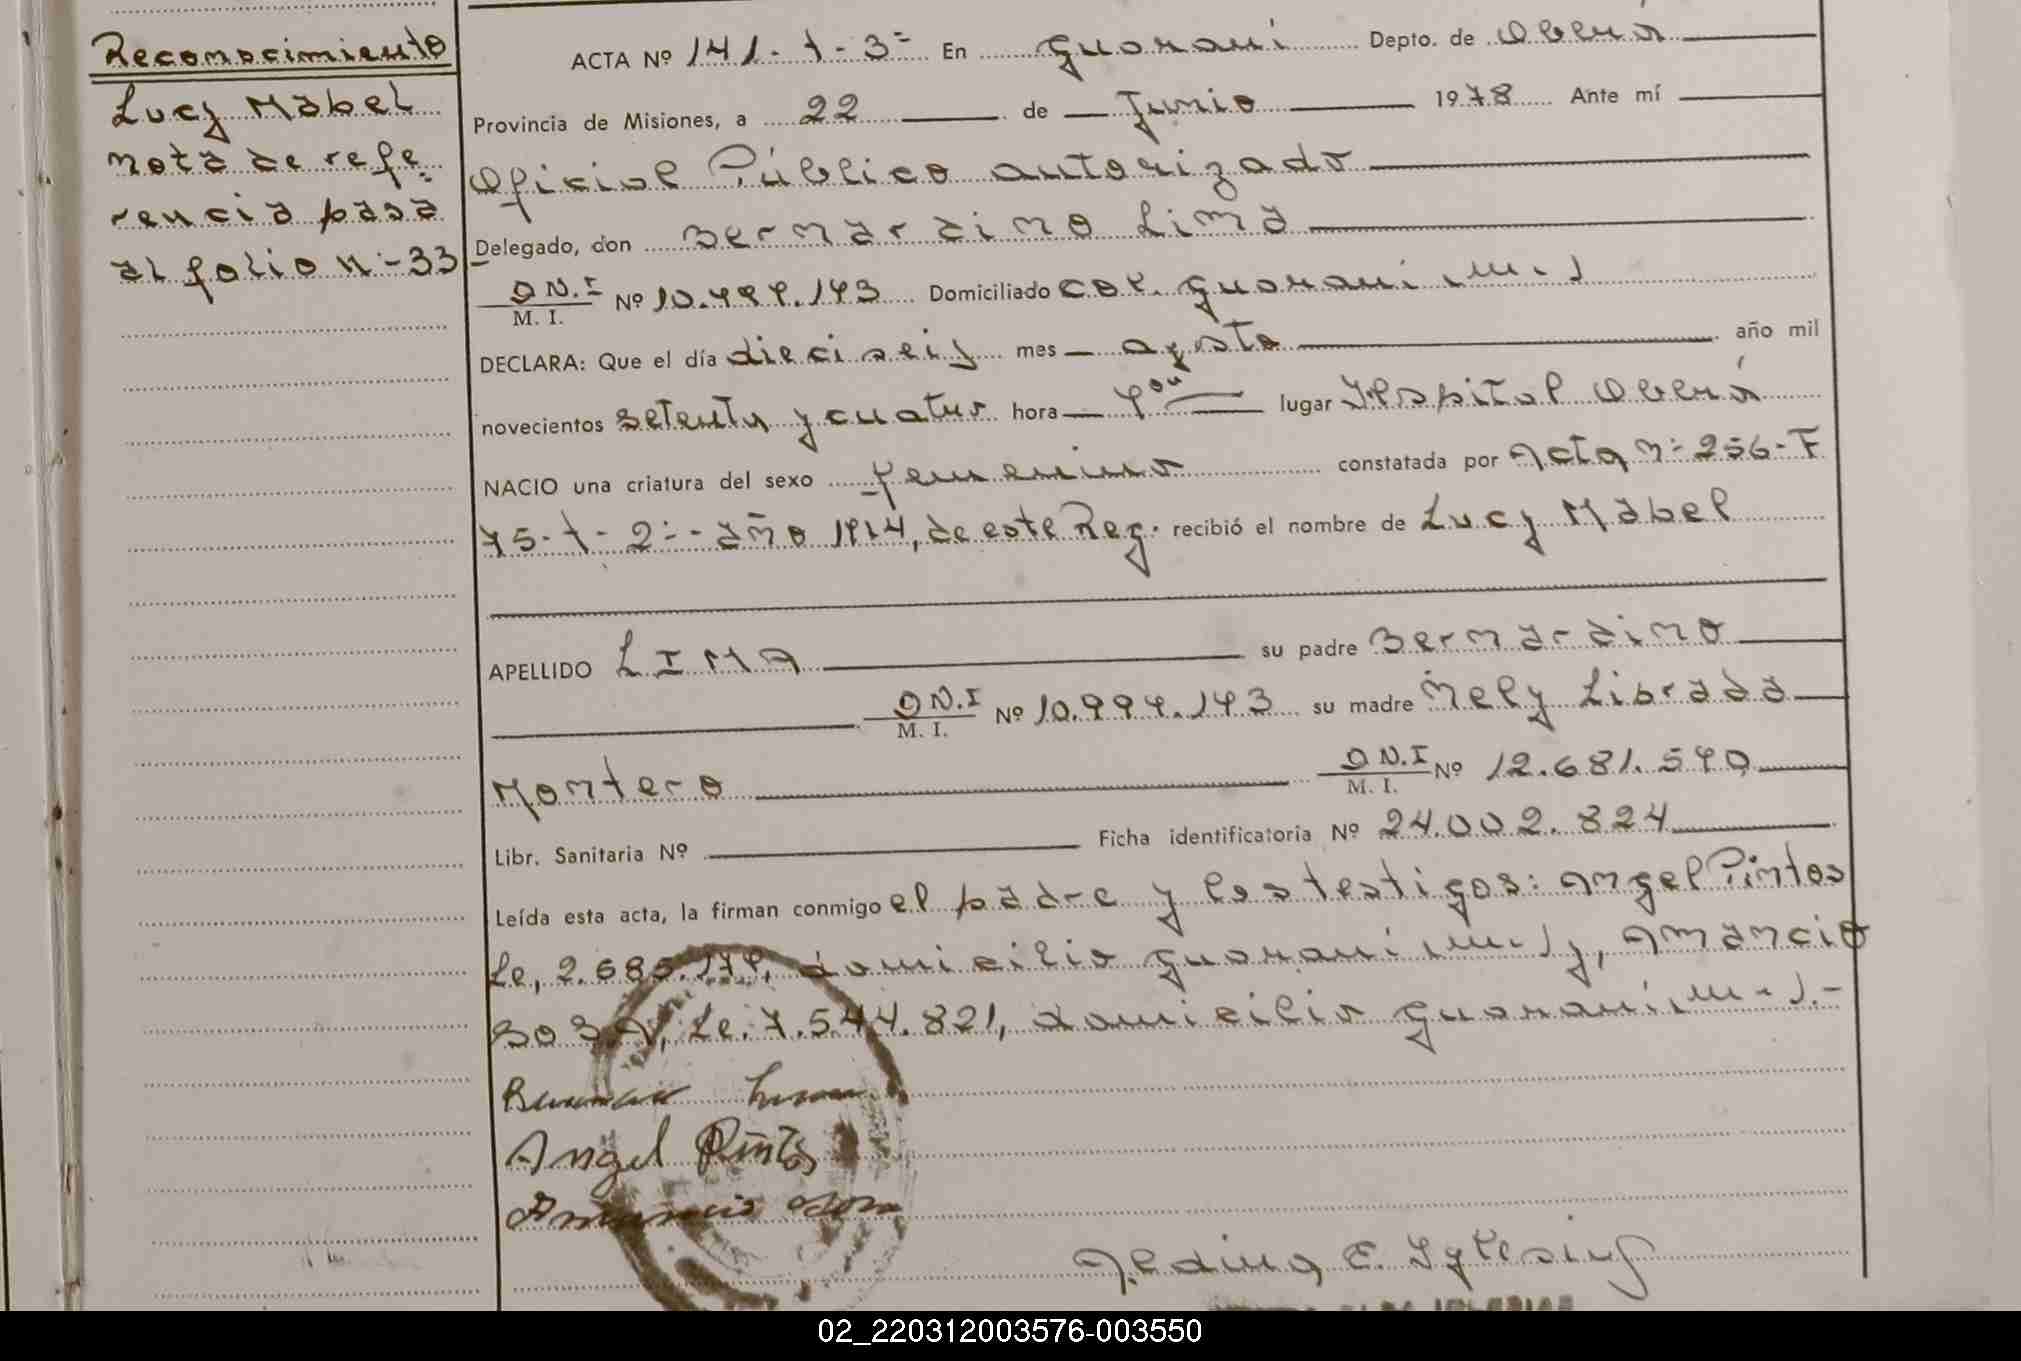 Reconocimiento
Lucy Mabel
nota de refe
rencia pasa
al folio n:-33
ACTA Nº 141-t-3= En Guaraní Depto. de Oberá
Provincia de Misiones, a 22 de Junio 1978 Ante mí
Oficial Público autorizado
Delegado, don Bernardino Lima
D N.I M. I. Nº 10.994.143 Domiciliado Col. Guaraní
DECLARA: Que el día dieciseis mes agosto año mil
novecientos setenta y cuatro hora lugar Hospital Oberá
NACIO una criatura del sexo femenino constatada por Acta n:- 256-F
75-t-2:- año 1974, de este Reg. recibió el nombre de Lucy Mabel
APELLIDO LIMA su padre Bernardino
D N.I M. I. Nº 10.994.143 su madre Nely Librada
Montero D N.I M. I. Nº 12.681.590
Libr. Sanitaria Nº Ficha identificatoria Nº 24.002.824
Leída esta acta, la firman conmigo el padre y los testigos: Angel Pintos
Le, domicilio Guaraní Amancio
Sosa, Le. 7.544.821, domicilio Guaraní
Angel Pintos
Amancio Sosa
E. Iglesias
IGLESIAS
02_220312003576-003550